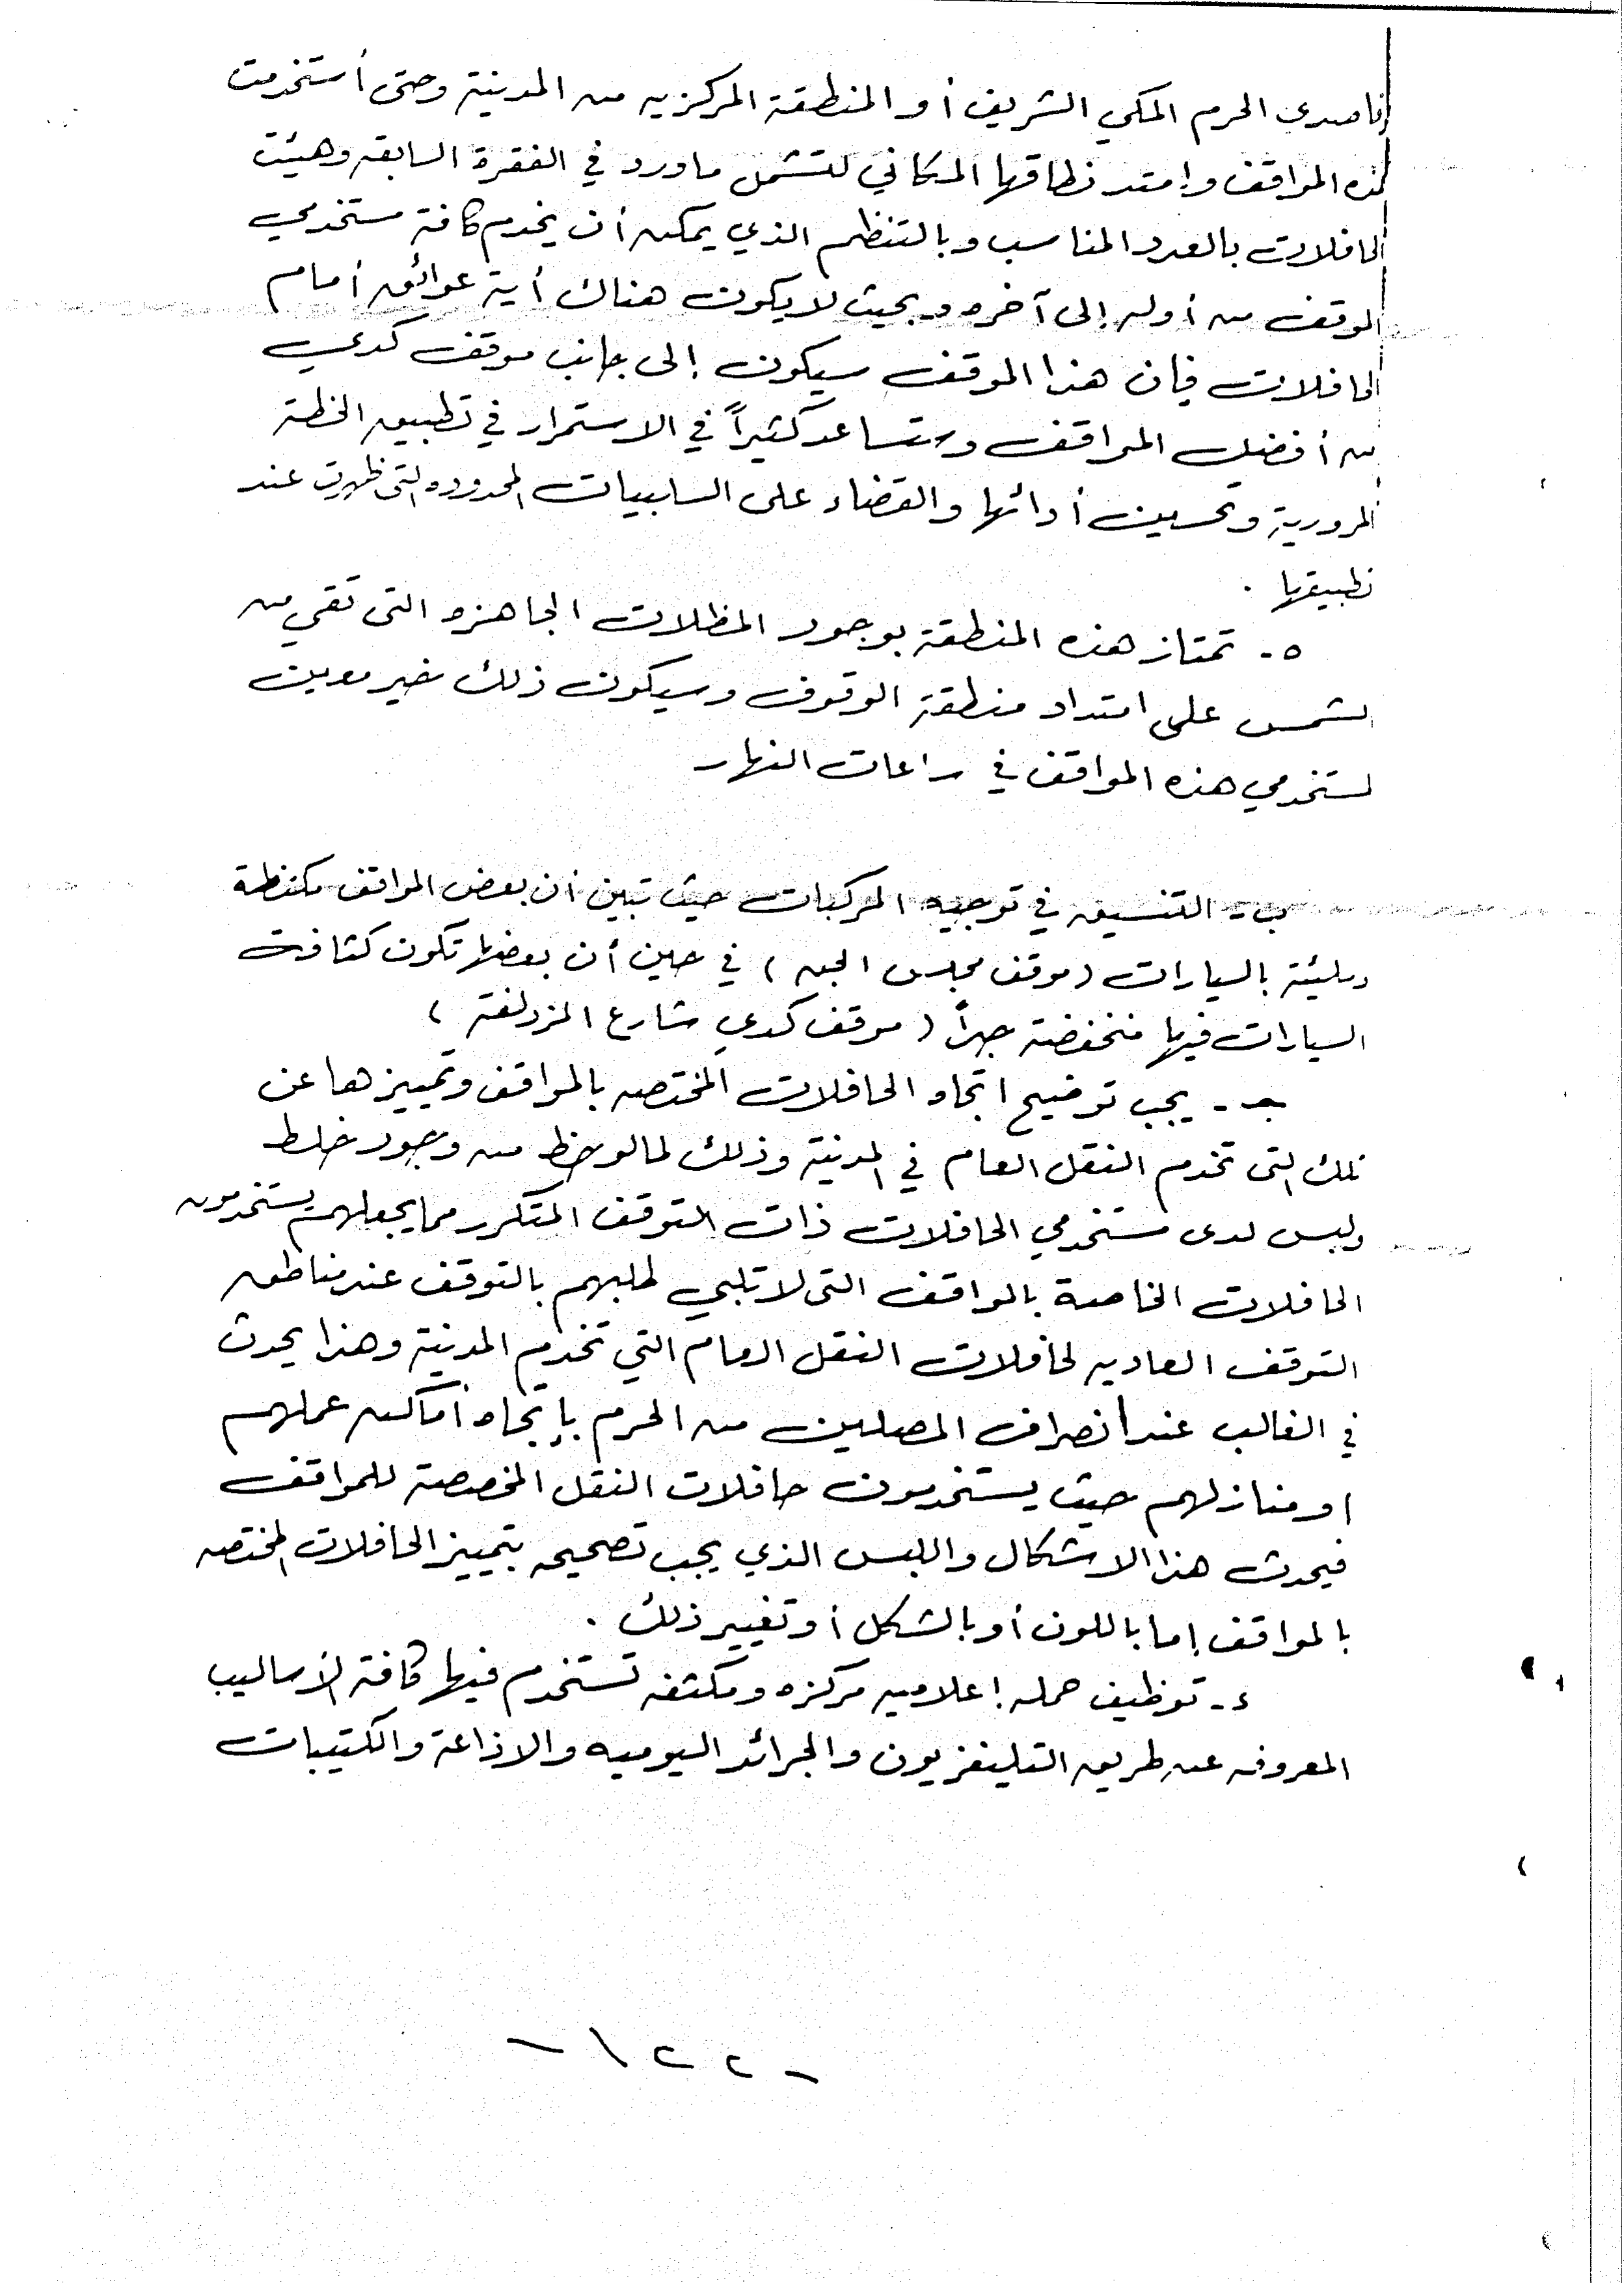 قاصدي الحرم المكي الشريف أو المنطقة المركزيه من المدينة وحتى أستخدمت
هذه المواقف وإمتد نطاقها المكاني لتشمل ماورد في الفقرة السابقه وهيئت
الحافلات بالعدد المناسب وبالتنظيم الذي يمكن أن يخدم كافة مستخدمي
الموقف من أوله إلى آخره وبحيث لا يكون هناك أية عوائق أمام
الحافلات فإن هذا الموقف سيكون إلى جانب موقف كدي
من أفضل المواقف وستساعد كثيراً في الاستمرار في تطبيق الخطة
المرورية وتحسين أدائها والقضاء على السلبيات المحدوده التي ظهرت عند
تطبيقها .
٥- تمتاز هذه المنطقة بوجود المظلات الجاهزه التى تقي من
الشمس على امتداد منطقة الوقوف وسيكون ذلك خير معين
لمستخدمي هذه المواقف في ساعات النهار
ب - التنسيق في توجيه المركبات حيث تبين أن بعض المواقف مكتظة
ومليئة بالسيارات (موقف مجلس الجن) في حين أن بعضها تكون كثافة
السيارات فيها منخفضة جداً (موقف كدي شارع المزدلفة)
جـ - يجب توضيح اتجاه الحافلات المختصه بالمواقف وتمييزها عن
تلك التى تخدم النقل العام في المدينة وذلك لما لوحظ من وجود خلط
ولبس لدى مستخدمي الحافلات ذات التوقف المتكرر مما يجعلهم يستخدمون
الحافلات الخاصة بالمواقف التى لا تلبي طلبهم بالتوقف عند مناطق
التوقف العاديه لحافلات النقل العام التي تخدم المدينة وهذا يحدث
في الغالب عند انصراف المصلين من الحرم بإتجاه أماكن عملهم
او منازلهم حيث يستخدمون حافلات النقل المخصصة للمواقف
فيحدث هذا الاشكال واللبس الذي يجب تصحيحه بتمييز الحافلات المختصه
بالمواقف إما باللون أو بالشكل أو تغيير ذلك .
د - توظيف حمله إعلاميه مركزه ومكثفه تستخدم فيها كافة الأساليب
المعروفه عن طريق التليفزيون والجرائد اليوميه والاذاعة والكتيبات
- ١٢٢ -